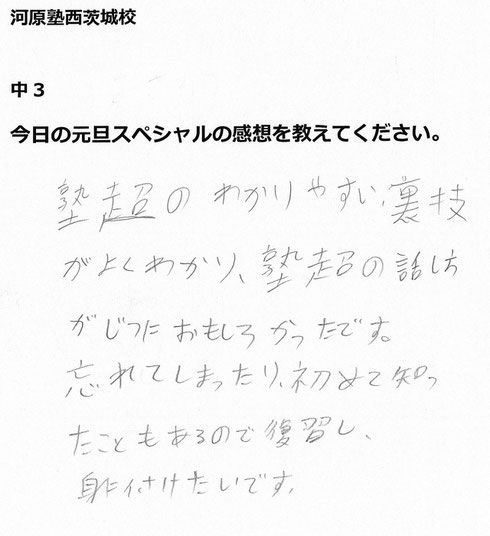 河原塾西茨城校
中３
今日の元旦スペシャルの感想を教えてください。
塾超のわかりやすい裏技
がよくわかり、塾超の話し方
がじつにおもしろかったです。
忘れてしまったり、初めて知っ
たこともあるので復習し、
身に付けたいです。